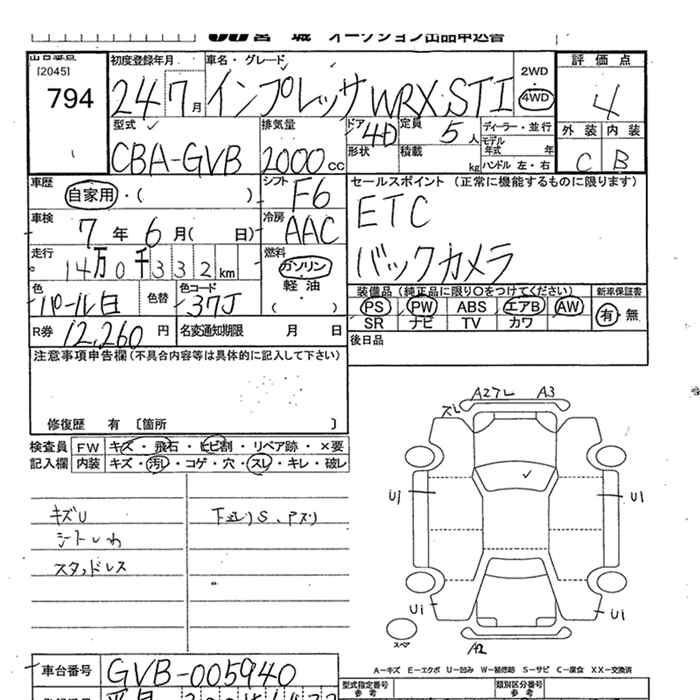 宮 城 オークション出品申込書
出品番号 初度登録年月 車名・グレード 2WD 評 価 点
[2045]
794 24 7月 インプレッサ WRX STI 4WD 4
型式 排気量 ドア 定員 ディーラー・並行 外 装 内 装
CBA-GVB 2000cc 4D 5人 モデル年式 年
形状 積載 kg ハンドル 左・右 C B
車歴 自家用・( ) シフト F6 セールスポイント (正常に機能するものに限ります)
車検 7年 6月( 日) 冷房 AAC ETC
走行 14万0千332km 燃料 ガソリン バックカメラ
軽 油
( )
色 パール白 色替 色コード 37J 装備品 (純正品に限り○をつけてください) 新車保証書
PS PW ABS エアB AW 有・無
R券 12,260円 名変通知期限 月 日 SR ナビ TV カワ
注意事項申告欄(不具合内容等は具体的に記入して下さい) 後日品
修復歴 有 [箇所 ]
検査員 FW キズ・飛石・ヒビ割・リペア跡・×要
記入欄 内装 キズ・汚レ・コゲ・穴・スレ・キレ・破レ
キズU 下廻りS、
シートしわ
スタッドレス
スレ A2スレ A3
U1 U1
U1 U1
スペア A2
A−キズ E−エクボ U−凹み W−補修跡 S−サビ C−腐食 XX−交換済
車台番号 GVB-005940 型式指定番号 類別区分番号
参考 参考